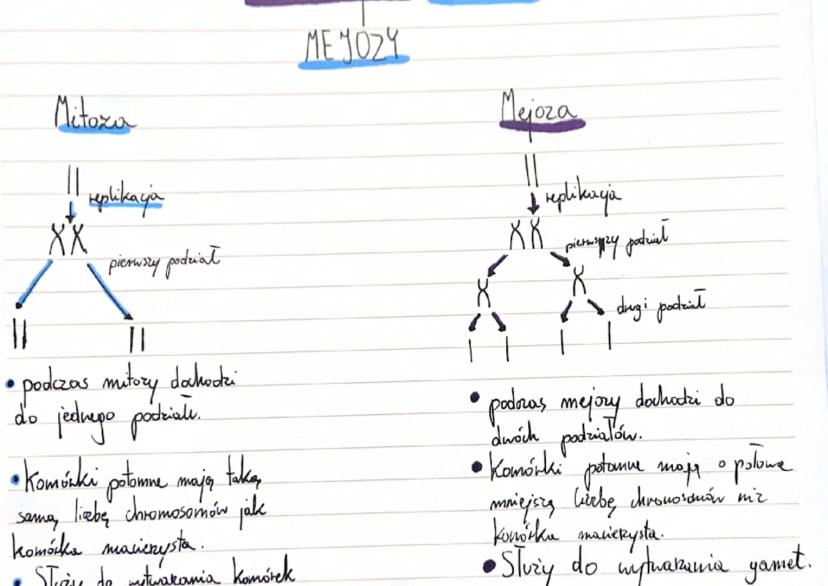 MEJOZY
Mitoza
replikacja
pierwszy podział
• podczas mitozy dochodzi
do jednego podziału.
• Komórki potomne mają taką
samą liczbę chromosomów jak
komórka macierzysta.
• Służy do wytwarzania komórek
Mejoza
replikacja
pierwszy podział
drugi podział
• podczas mejozy dochodzi do
dwóch podziałów.
• Komórki potomne mają o połowe
mniejszą liczbę chromosomów niż
komórka macierzysta.
• Służy do wytwarzania gamet.